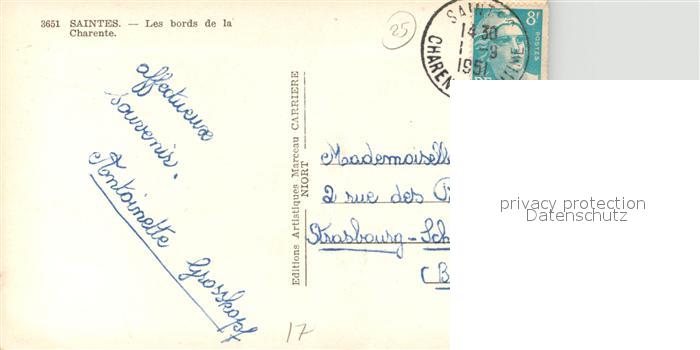 3651 SAINTES. — Les bords de la
Charente.
25
SAINTES
14 30
1 -9
1951
CHARENTE MARITIME
8F
POSTES
affectueux
souvenir.
Antoinette Grosskopf
Editions Artistiques Marceau CARRIERE
NIORT
Mademoiselle
2 rue des
Strasbourg - Sch
(B
17
privacy protection
Datenschutz